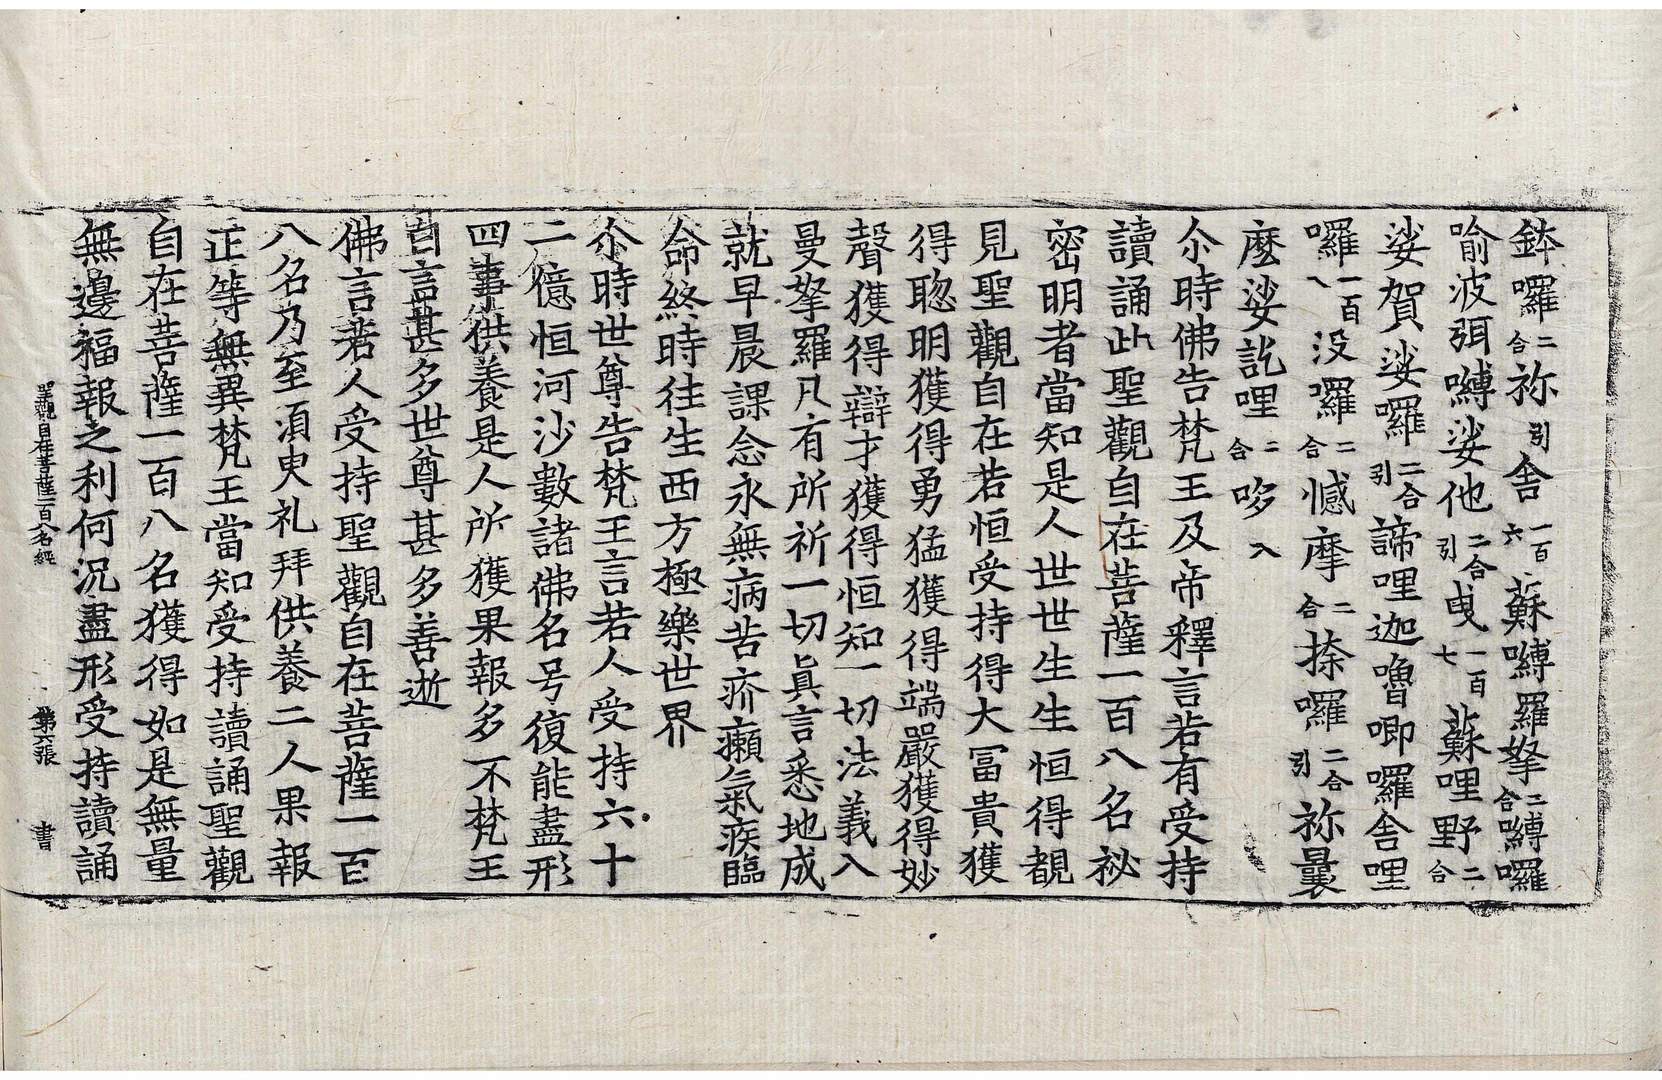 鉢囉二合祢引舎一百六蘇嚩羅拏二合嚩囉
喻波弭嚩娑他二合引曳一百七蘇哩野二合
娑賀娑囉二合引諦哩迦嚕唧囉舎哩
囉一百八没囉二合憾摩二合捺囉二合引祢曩
麼娑訖哩二合哆入
尒時佛告梵王及帝釋言若有受持
讀誦此聖觀自在菩薩一百八名祕
密明者當知是人世世生生恒得覩
見聖觀自在若恒受持得大冨貴獲
得聡明獲得勇猛獲得端嚴獲得妙
聲獲得辯才獲得恒知一切法義入
曼拏羅凡有所祈一切眞言悉地成
就早晨課念永無病苦疥癩氣疾臨
命終時往生西方極樂世界
尒時世尊告梵王言若人受持六十
二億恒河沙數諸佛名号復能盡形
四事供養是人所獲果報多不梵王
白言甚多世尊甚多善逝
佛言若人受持聖觀自在菩薩一百
八名乃至湏臾礼拜供養二人果報
正等無異梵王當知受持讀誦聖觀
自在菩薩一百八名獲得如是無量
無邊福報之利何況盡形受持讀誦
聖觀自在菩薩一百八名經 第六張 書